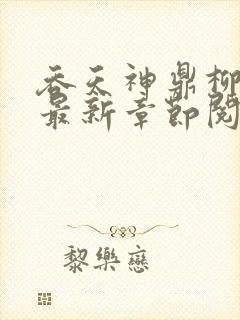 吞天神鼎柳
最新章節閱
黎樂戀